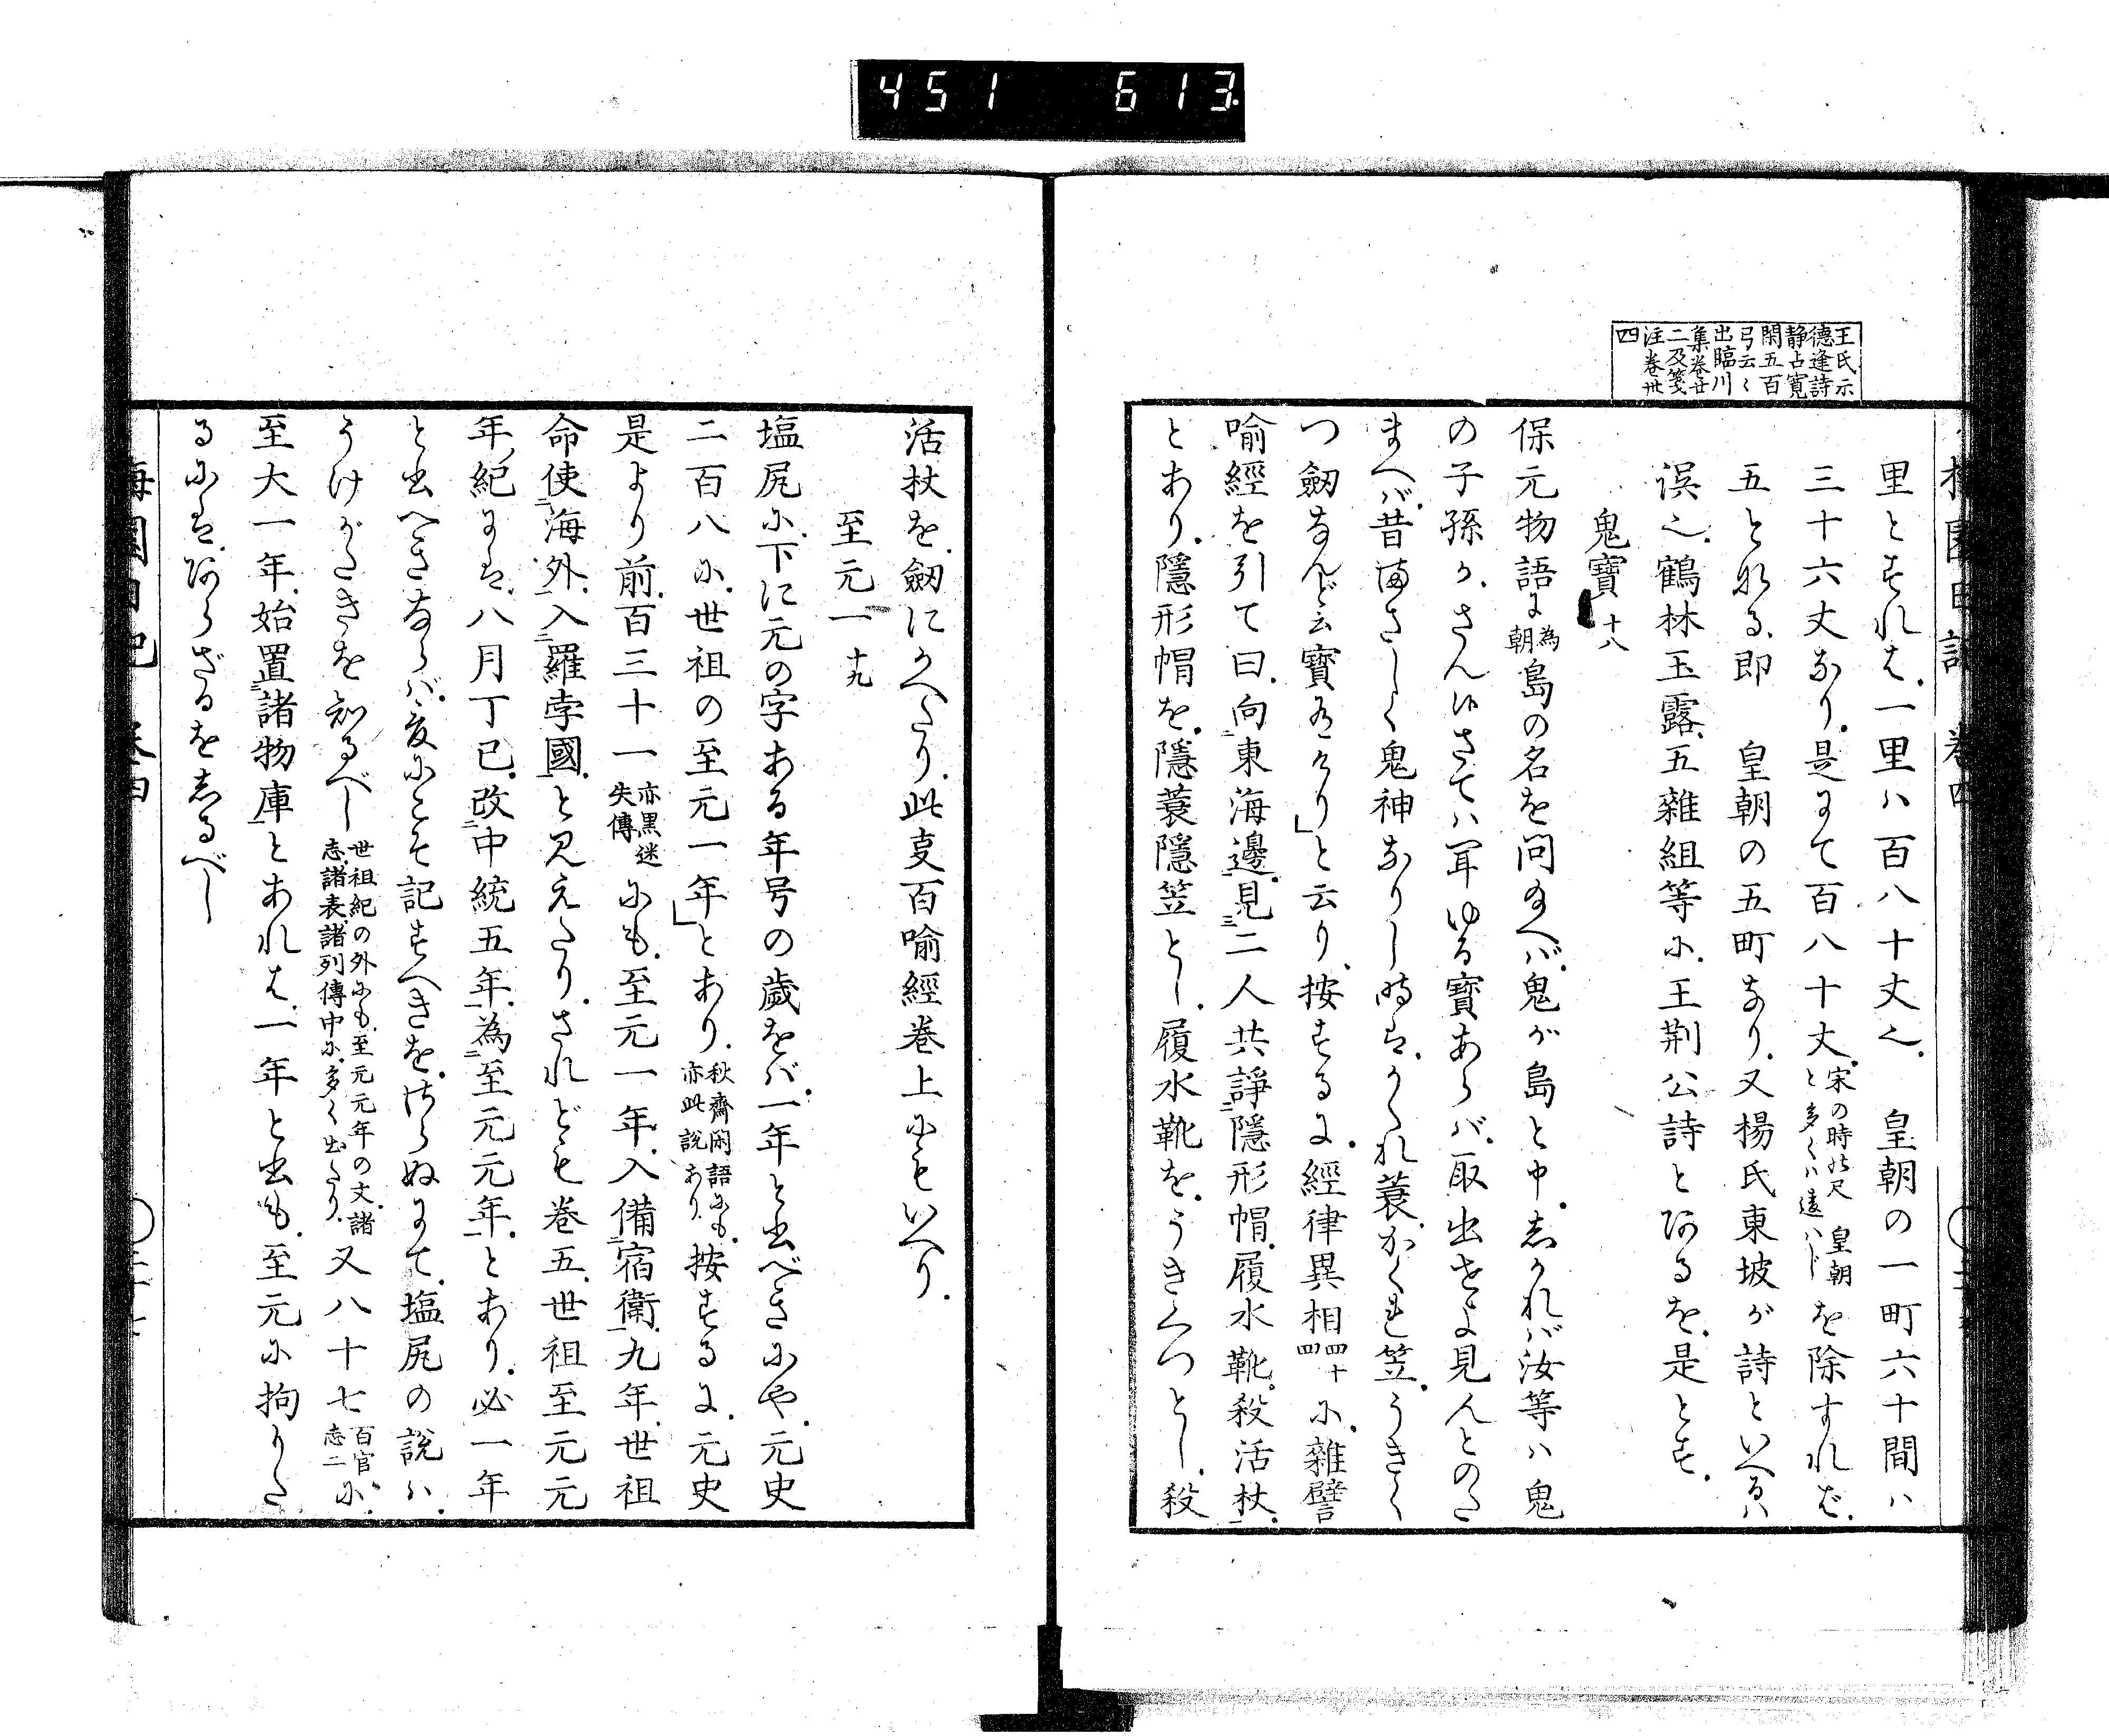 451 613
王氏示
德逢詩
静占寛
閑五百
弓云〻
出臨川
集巻廿
二及箋
注巻卅
四
梅園日記 巻四
里とすれは、一里ハ百八十丈也、 皇朝の一町六十間ハ
三十六丈なり、是にて百八十丈、宋の時の尺 皇朝と多くハ違ハじを除すれば、
五となる、即 皇朝の五町なり、又楊氏東坡が詩といへるハ
誤也、鶴林玉露、五雜組等に、王荆公詩とあるを、是とす、
鬼寶 十八
保元物語に為朝島の名を問給へば、鬼が島と申、しかれば汝等ハ鬼
の子孫か、さん候、さてハ聞ゆる寶あらば、取出せよ見んとのた
まへば、昔まさしく鬼神なりし時は、かくれ蓑、かくれ笠、うきく
つ、劒なんど云寶有けり」と云り、按するに、經律異相四十四に、雜譬
喻經を引て曰、向東海邊、見二人共諍隱形帽、履水靴、殺活杖、
とあり、隱形帽を、隱蓑隱笠とし、履水靴を、うきくつとし、殺
活杖を、劒にかへたり、此支百喻經巻上にもいへり、
至元一 十九
塩尻に、下に元の字ある年号の歳をば、一年と出べきにや、元史
二百八に、世祖の至元一年」とあり、秋齋閑語にも、亦此說あり、按するに、元史
是より前、百三十一亦黒迷失傳にも、至元一年、入備宿衛、九年、世祖
命使海外、入羅孛國、と見えたり、されども巻五、世祖至元元
年、紀には、八月丁已、改中統五年、為至元元年、とあり、必一年
と出へきならば、爰にこそ記すへきを、さらぬにて、塩尻の說ハ、
うけがたきを知るべし世祖紀の外にも、至元元年の文、諸志、諸表、諸列傳中に、多く出たり、又八十七百官志二に、
至大一年、始置諸物庫とあれは、一年と出も、至元に拘りた
るには、あらざるをしるべし
梅園日記 巻四